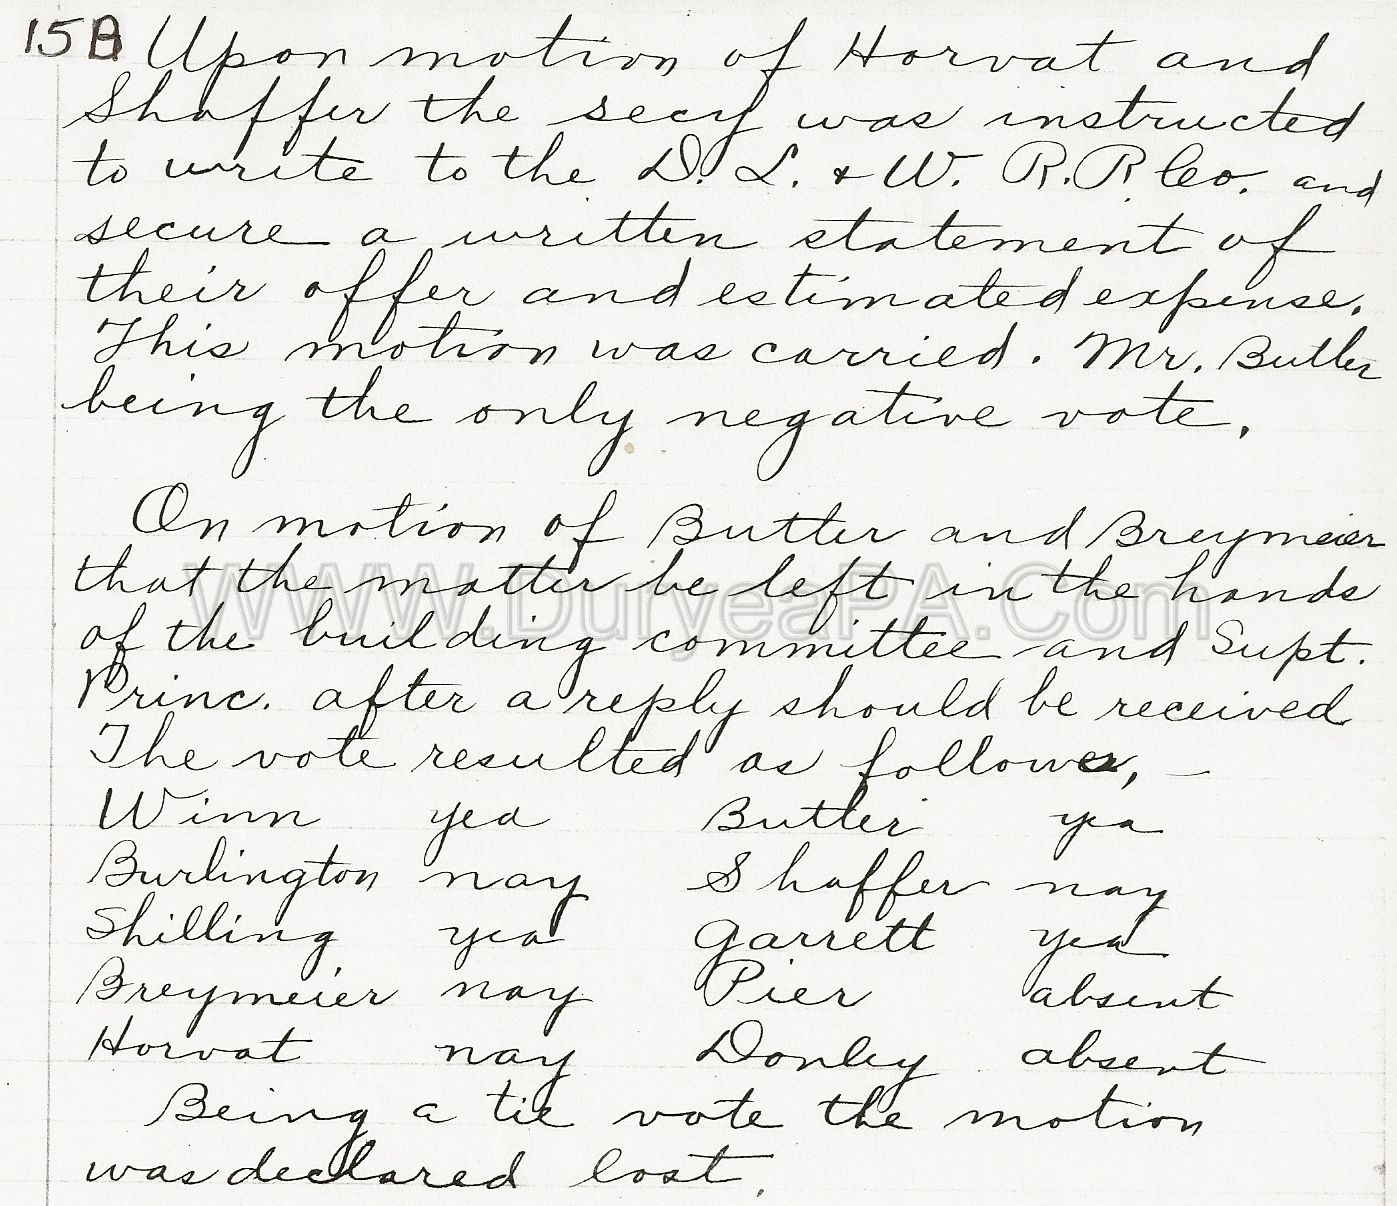 15B Upon motion of Horvat and
Shaffer the secy was instructed
to write to the D. L. & W. R.R. Co. and
secure a written statement of
their offer and estimated expense.
This motion was carried. Mr. Butler
being the only negative vote.
On motion of Butler and Breymeier
that the matter be left in the hands
WWW.DuryeaPA.Com
of the building committee and Supt.
Princ. after a reply should be received
The vote resulted as follows, —
Winn yea Butler yea
Burlington nay Shaffer nay
Shilling yea Garrett yea
Breymeier nay Pier absent
Horvat nay Donley absent
Being a tie vote the motion
was declared lost.